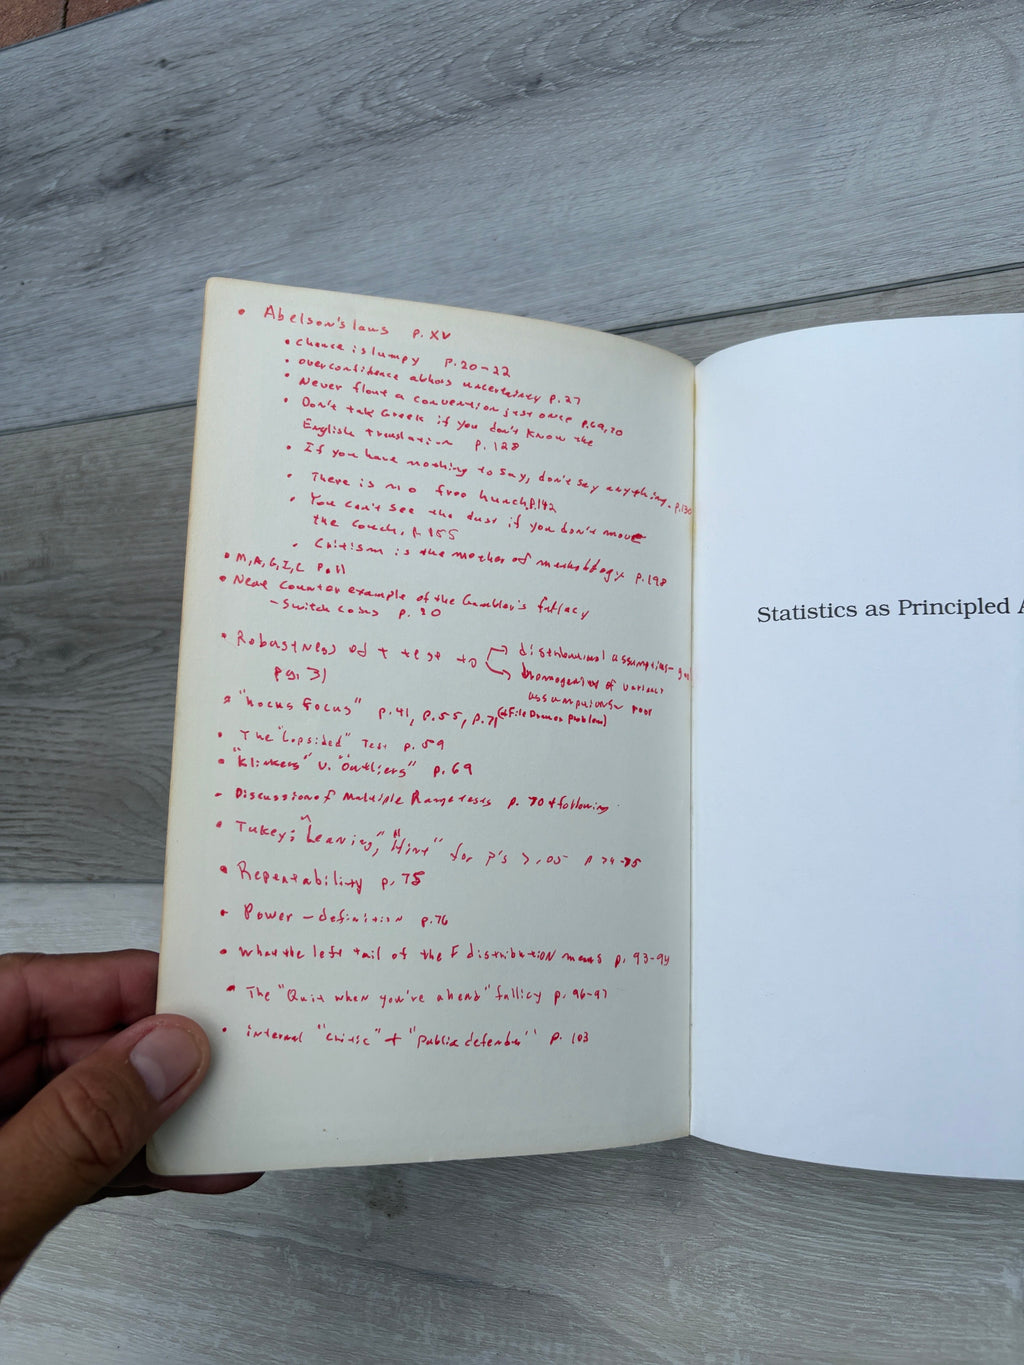 • Abelson's laws p. XV
• Chance is lumpy p. 20-22
• overconfidence abhors uncertainty p. 27
• Never flout a convention just once p. 69, 70
• Don't talk Greek if you don't know the
English translation p. 128
• If you have nothing to say, don't say anything. p. 130
• There is no free hunch p. 142
• You can't see the dust if you don't move
the couch, p. 155
• Critism is the mother of methodology p. 198
• M, A, G, I, C p. 11
• Neat counter example of the Gambler's fallacy
- Switch coins p. 20
• Robustness of t test to → distributional assumptions -
pg. 31 → homogeneity of variance
assumptions poor
• "hocus focus" p. 41, p. 55, p. 71 (File Drawer problem)
• The "Lopsided" Test p. 59
• "Klinkers" v. "Outliers" p. 69
- Discussion of Multiple Range tests p. 70 + following
• Tukey; "Leaning", "Hint" for p's > .05 p 74-75
• Repeatability p. 75
• Power - definition p. 76
• What the left tail of the F distribution means p. 93-94
• The "Quit when you're ahead" fallicy p. 96-97
• internal "critic" + "public defender" p. 103
Statistics as Principled A